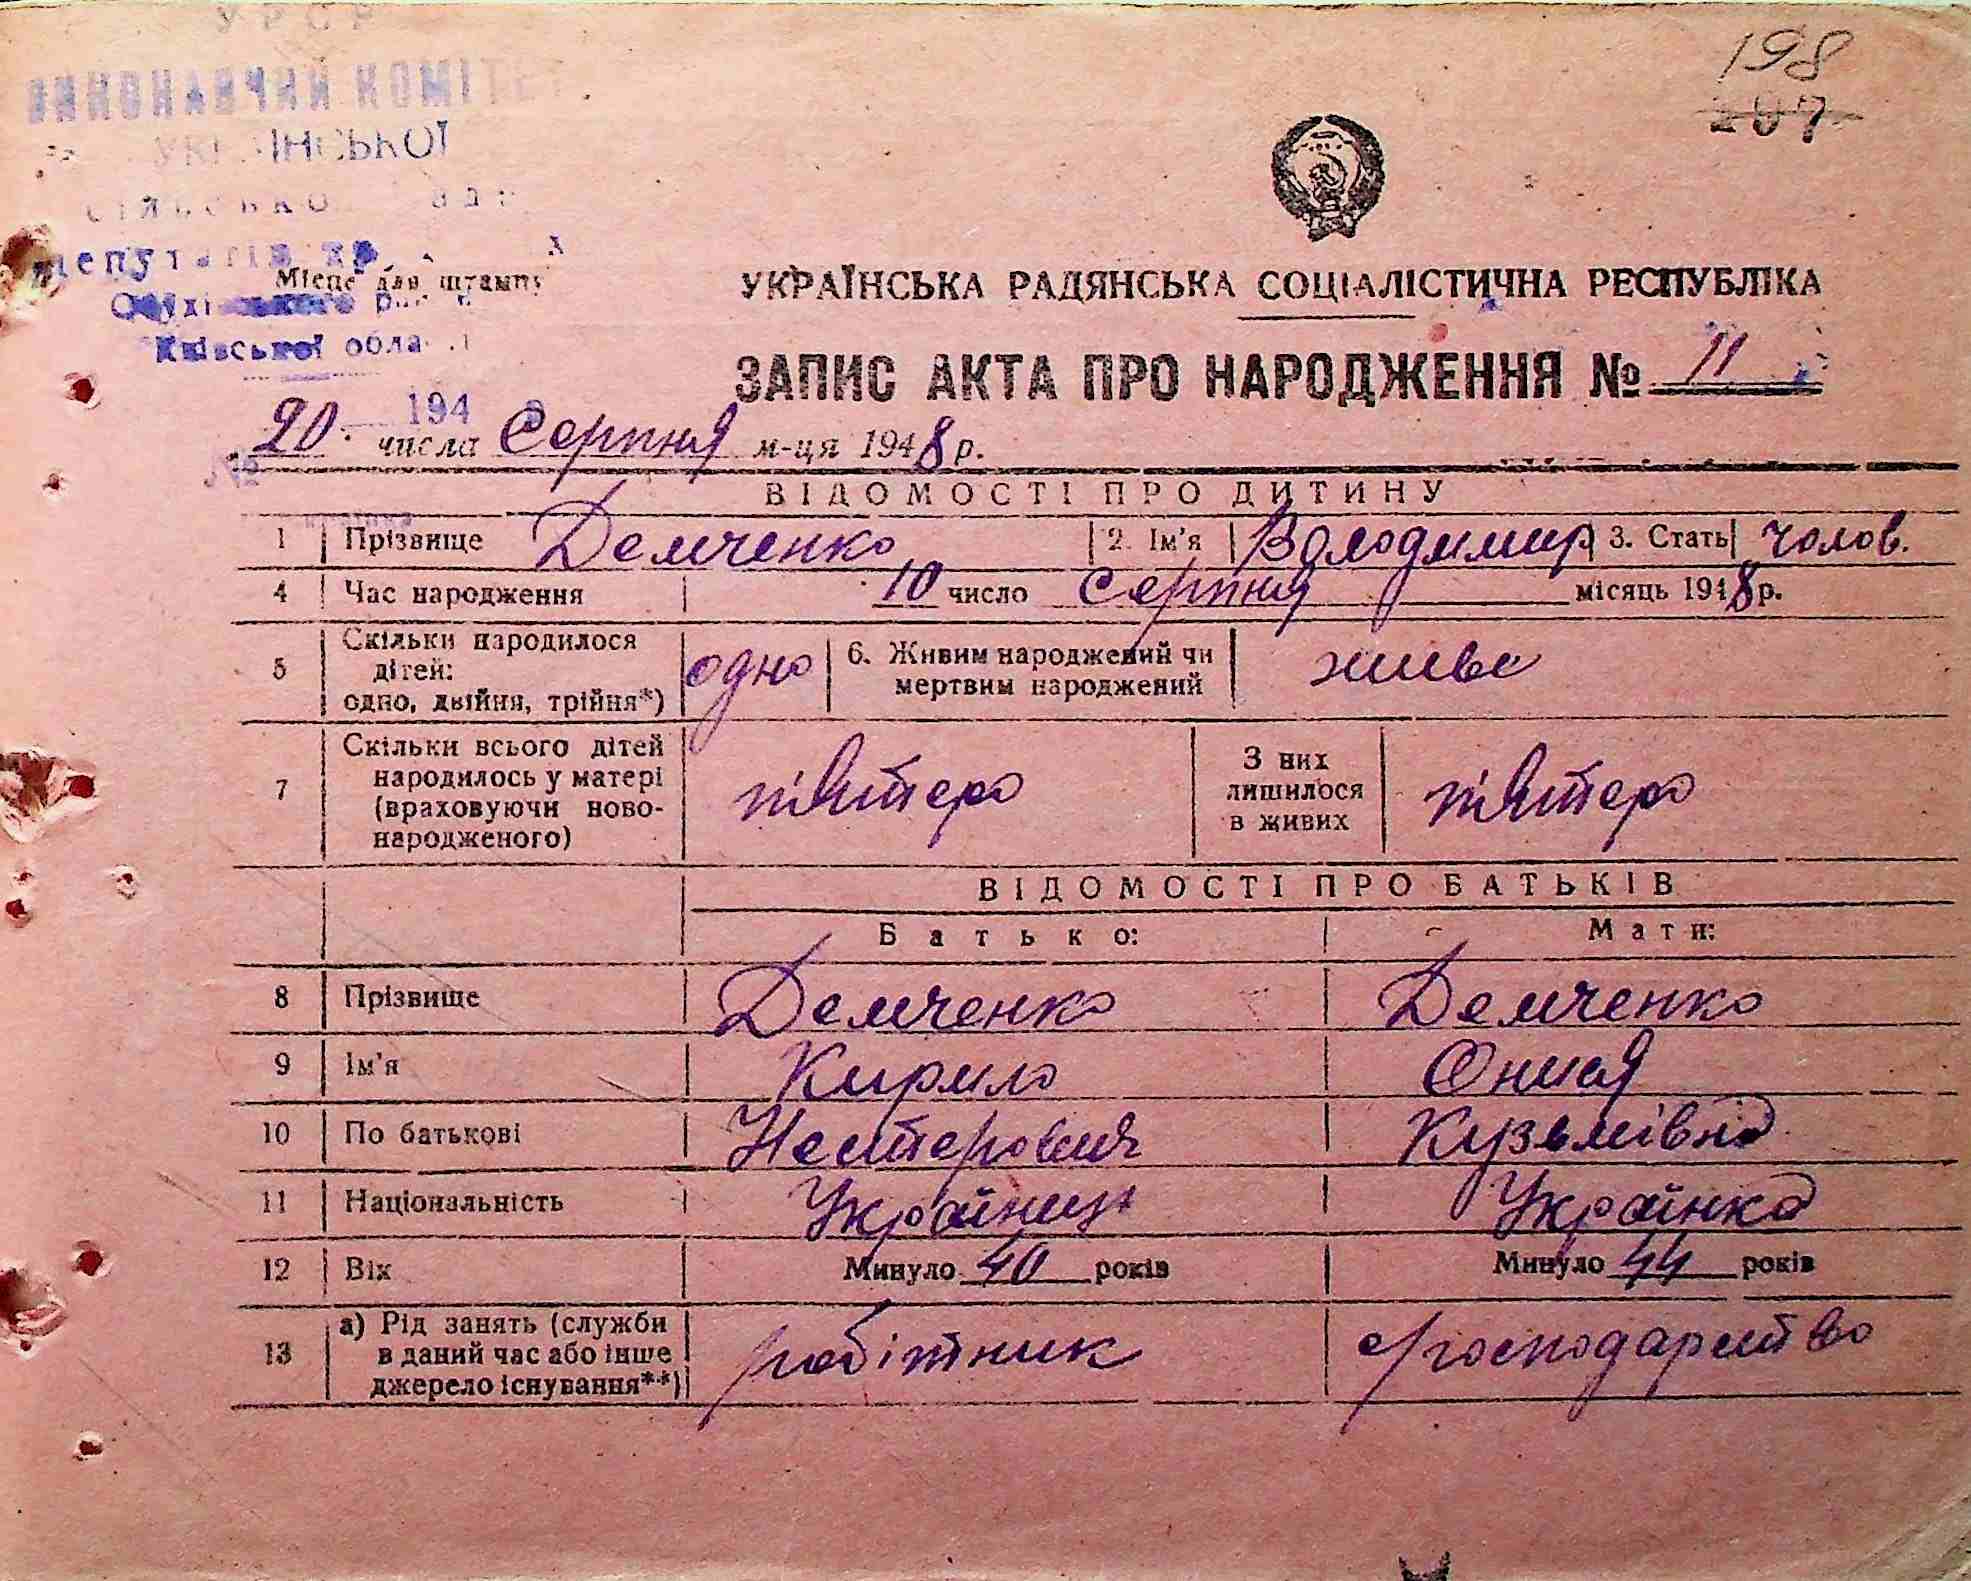 УРСР
ВИКОНАВЧИЙ КОМІТЕ
УКРАЇНСЬКОЇ
депутатів
Місце для штампу
Обухівського
Київської обла
194
№
198
207
УКРАЇНСЬКА РАДЯНСЬКА СОЦІАЛІСТИЧНА РЕСПУБЛІКА
ЗАПИС АКТА ПРО НАРОДЖЕННЯ № 11
20 числа Серпня м-ця 1948 р.
ВІДОМОСТІ ПРО ДИТИНУ
1 Прізвище Демченко 2. Ім'я Володимир 3. Стать чолов.
4 Час народження 10 число Серпня місяць 1948 р.
5 Скільки народилося дітей: одно, двійня, трійня*) одно 6. Живим народжений чи мертвим народжений живе
7 Скільки всього дітей народилось у матері (враховуючи ново-народженого) п'ятеро З них лишилося в живих п'ятеро
ВІДОМОСТІ ПРО БАТЬКІВ
Батько: Мати:
8 Прізвище Демченко Демченко
9 Ім'я Кирило Онися
10 По батькові Нестерович Кузьмівна
11 Національність Українець Українка
12 Вік Минуло 40 років Минуло 44 років
13 а) Рід занять (служби в даний час або інше джерело існування**) робітник господарство